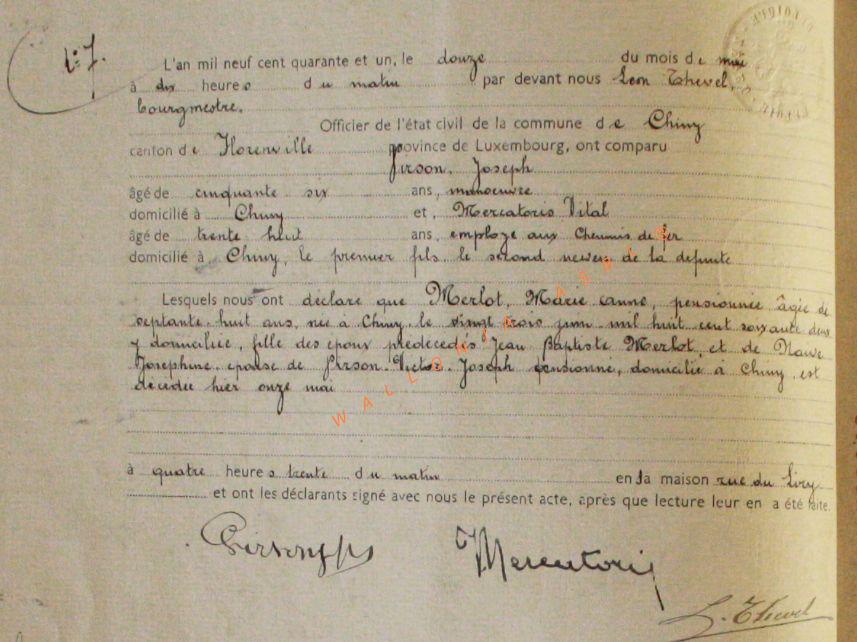 N° 7.
L'an mil neuf cent quarante et un, le douze du mois de mai
à dix heures du matin par devant nous Léon Thevel,
bourgmestre.
Officier de l'état civil de la commune de Chiny
canton de Florenville province de Luxembourg, ont comparu
Pirson, Joseph
âgé de cinquante six ans, manoeuvre
domicilié à Chiny et, Mercatoris Vital
âgé de trente huit ans, employé aux Chemins de fer
domicilié à Chiny, le premier fils, le second neveu de la défunte
Lesquels nous ont déclaré que Merlot, Marie Anne, pensionnée, âgée de
septante huit ans, née à Chiny le vingt trois juin mil huit cent soixante deux
y domiciliée, fille des époux prédécédés Jean Baptiste Merlot, et de
Joséphine, épouse de Pirson Victor Joseph pensionné, domicilié à Chiny, est
décédée hier onze mai
à quatre heures trente du matin en sa maison rue du
et ont les déclarants signé avec nous le présent acte, après que lecture leur en a été faite.
Pirson fils Mercatoris
L. Thevel
WALLONIE